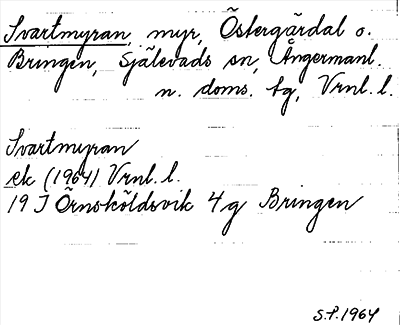 Svartmyran, myr, Östergärdal o.
Bringen, Själevads sn, Ångermanl.
n. doms. tg, Vrnl. l.
Svartmyran
ek (1964) Vrnl. l.
19 J Örnsköldsvik 4g Bringen
S.P. 1964